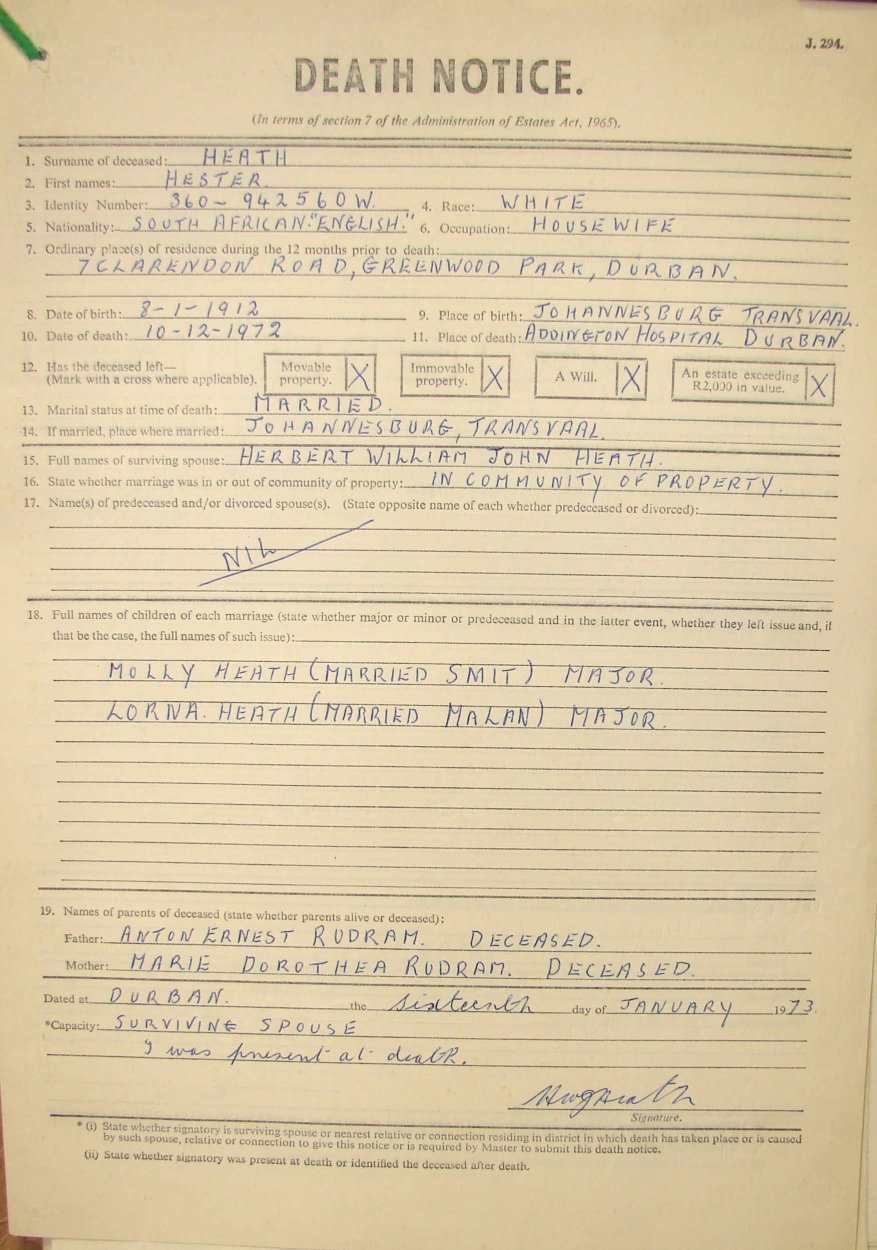 J. 294.
DEATH NOTICE.
(In terms of section 7 of the Administration of Estates Act, 1965).
1. Surname of deceased: HEATH
2. First names: HESTER.
3. Identity Number: 360-942560W. 4. Race: WHITE
5. Nationality: SOUTH AFRICAN "ENGLISH." 6. Occupation: HOUSEWIFE
7. Ordinary place(s) of residence during the 12 months prior to death:
7 CLARENDON ROAD, GREENWOOD PARK, DURBAN.
8. Date of birth: 8-1-1912 9. Place of birth: JOHANNESBURG TRANSVAAL.
10. Date of death: 10-12-1972 11. Place of death: ADDINGTON HOSPITAL DURBAN.
12. Has the deceased left— (Mark with a cross where applicable). Movable property. X Immovable property. X A Will. X An estate exceeding R2,000 in value. X
13. Marital status at time of death: MARRIED.
14. If married, place where married: JOHANNESBURG, TRANSVAAL.
15. Full names of surviving spouse: HERBERT WILLIAM JOHN HEATH.
16. State whether marriage was in or out of community of property: IN COMMUNITY OF PROPERTY.
17. Name(s) of predeceased and/or divorced spouse(s). (State opposite name of each whether predeceased or divorced):
NIL
18. Full names of children of each marriage (state whether major or minor or predeceased and in the latter event, whether they left issue and, if
that be the case, the full names of such issue):
MOLLY HEATH (MARRIED SMIT) MAJOR.
LORNA. HEATH (MARRIED MALAN) MAJOR.
19. Names of parents of deceased (state whether parents alive or deceased):
Father: ANTON ERNEST RUDRAM. DECEASED.
Mother: MARIE DOROTHEA RUDRAM. DECEASED.
Dated at DURBAN. the sixteenth day of JANUARY 1973.
*Capacity: SURVIVING SPOUSE
I was present at death.
HWJ Heath
Signature.
* (i) State whether signatory is surviving spouse or nearest relative or connection residing in district in which death has taken place or is caused
by such spouse, relative or connection to give this notice or is required by Master to submit this death notice.
(ii) State whether signatory was present at death or identified the deceased after death.